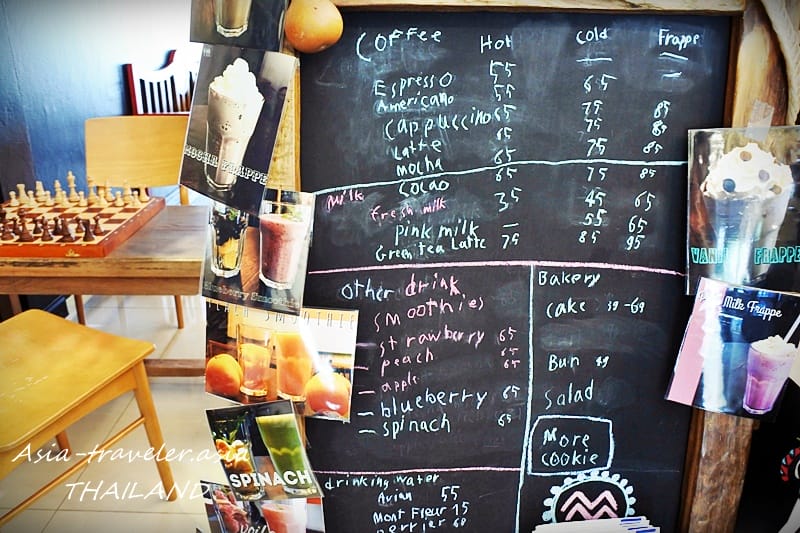 Coffee Hot Cold Frappe
Espresso 55 65
Americano 55 75 85
Cappuccino 65 75 85
Latte 65 75 85
Mocha 65
Cocao 65 75 85
Milk
Fresh milk 35 45 65
Pink milk — 55 65
Green tea Latte 75 85 95
Other drink
Smoothies
- strawberry 65
- peach 65
- apple 65
- blueberry 65
- spinach 65
Bakery
Cake 39-69
Bun 49
Salad
More
Cookie
drinking water
Avian 55
Mont Fleur 15
perrier 60
MOCHA FRAPPE
Blueberry Smoothie
PEACH SMOOTHIE
SPINACH
VANILLA FRAPPE
Pink Milk Frappe
Asia-traveler.asia
THAILAND